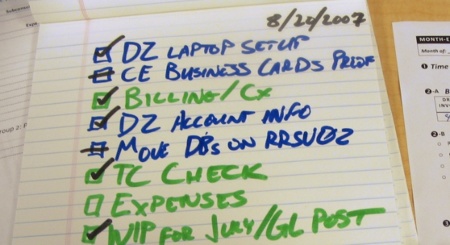 8/20/2007
DZ LAPTOP SETUP
CE BUSINESS CARDS PROOF
BILLING/CX
DZ ACCOUNT INFO
MOVE DB'S ON RRSUB2
TC CHECK
EXPENSES
WIP FOR JULY/GL POST
MONTH-E
Month of:
Time